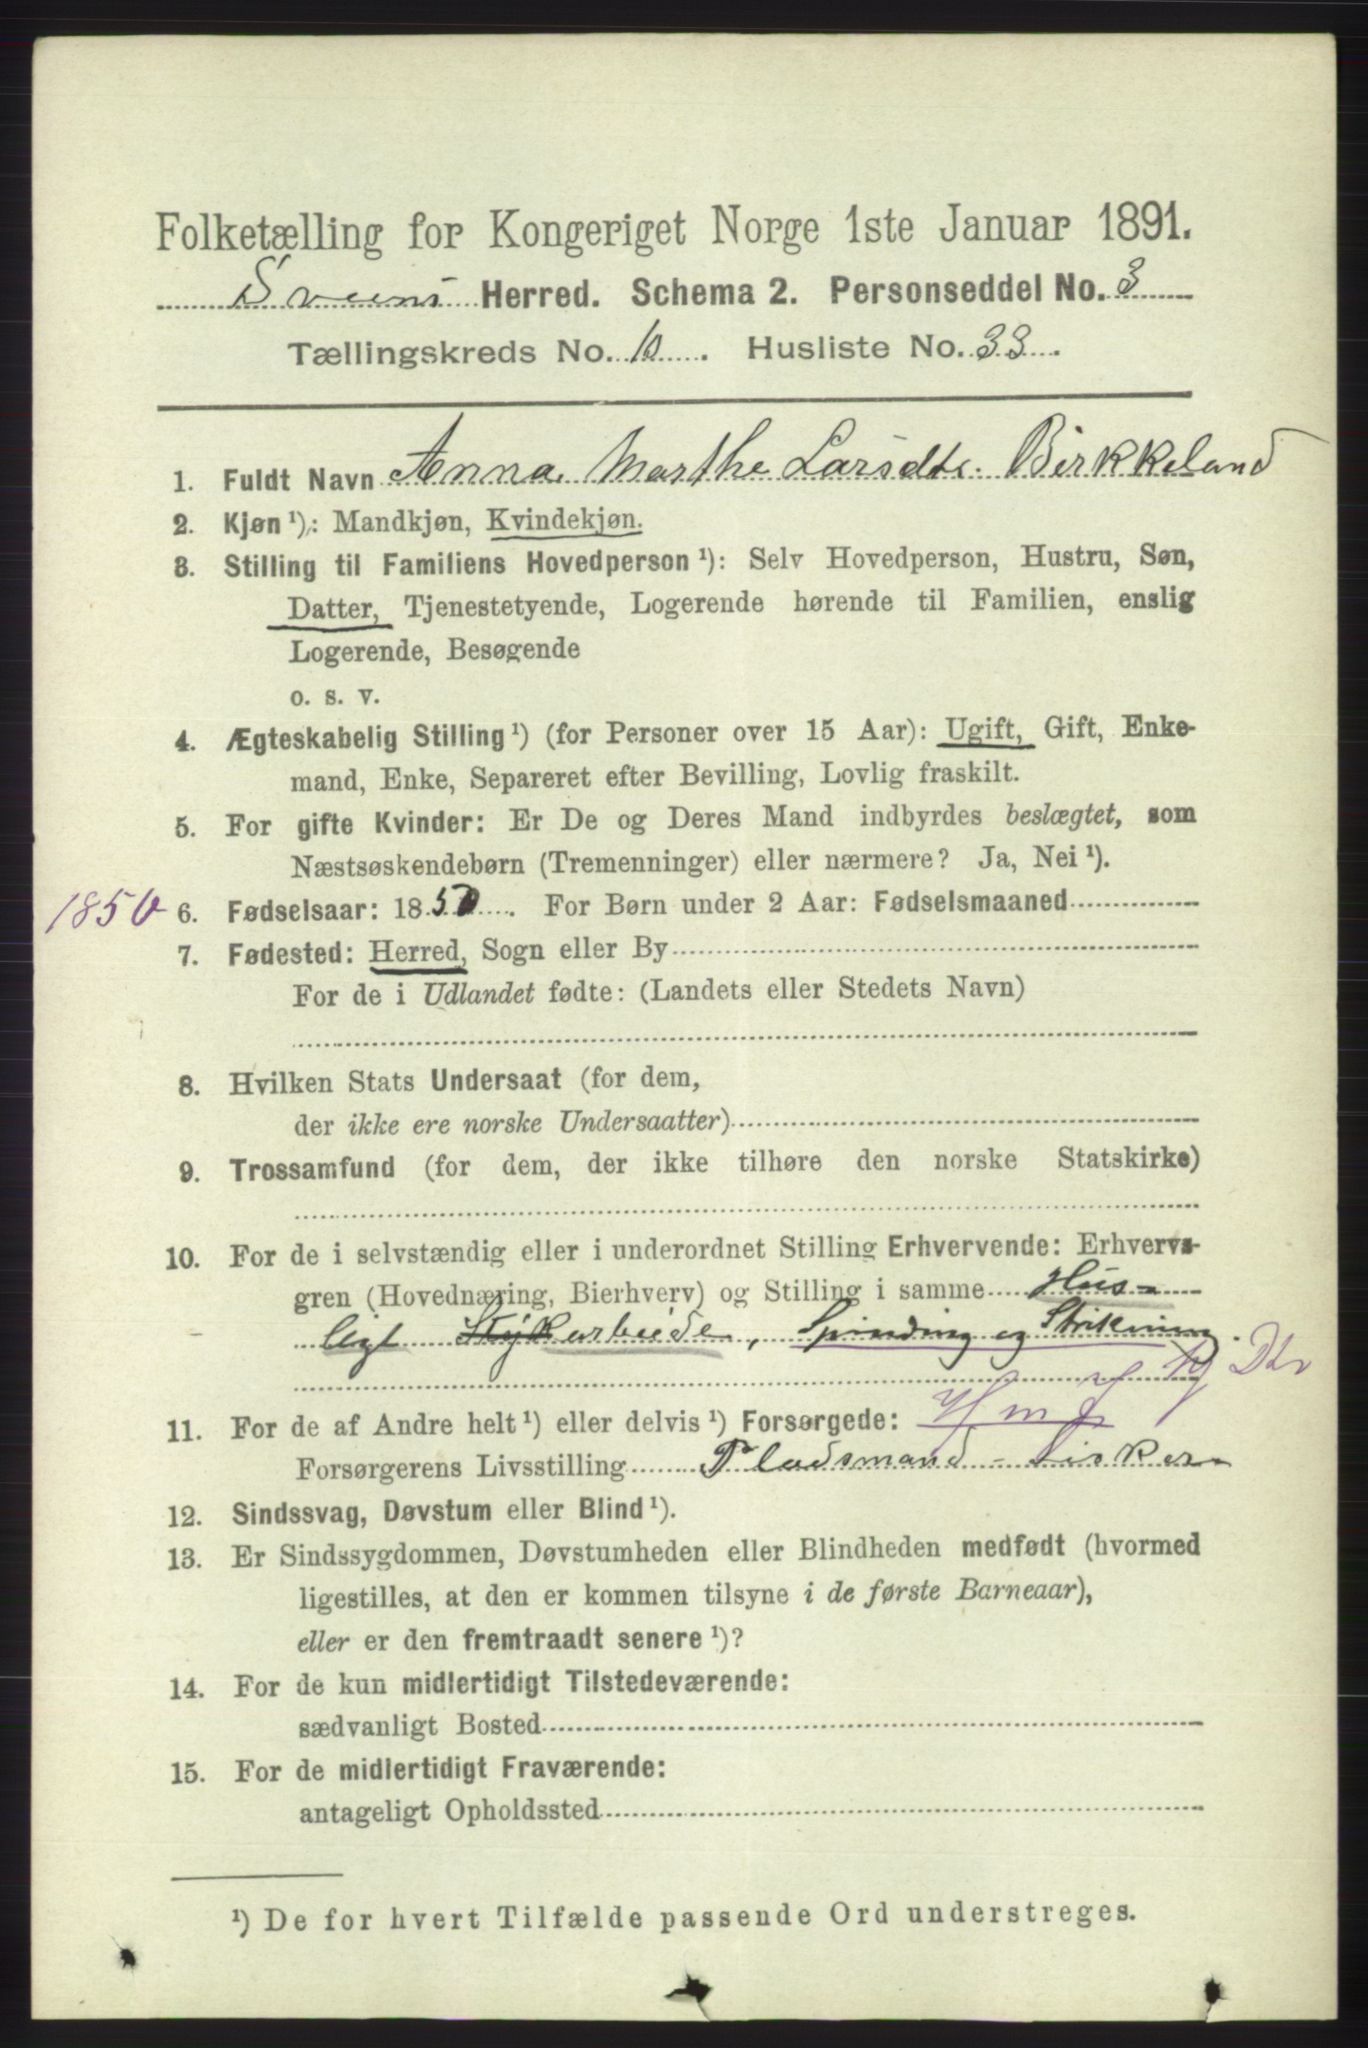 Folketælling for Kongeriget Norge 1ste Januar 1891.
Sveens Herred. Schema 2. Personseddel No. 3
Tællingskreds No. 10. Husliste No. 33.
1. Fuldt Navn Anna Marthe Larsdtr. Birkkeland
2. Kjøn ¹): Mandkjøn, Kvindekjøn.
3. Stilling til Familiens Hovedperson ¹): Selv Hovedperson, Hustru, Søn,
Datter, Tjenestetyende, Logerende hørende til Familien, enslig
Logerende, Besøgende
o. s. v.
4. Ægteskabelig Stilling ¹) (for Personer over 15 Aar): Ugift, Gift, Enke-
mand, Enke, Separeret efter Bevilling, Lovlig fraskilt.
5. For gifte Kvinder: Er De og Deres Mand indbyrdes beslægtet, som
Næstsøskendebørn (Tremenninger) eller nærmere? Ja, Nei ¹).
1850 6. Fødselsaar: 1850. For Børn under 2 Aar: Fødselsmaaned
7. Fødested: Herred, Sogn eller By
For de i Udlandet fødte: (Landets eller Stedets Navn)
8. Hvilken Stats Undersaat (for dem,
der ikke ere norske Undersaatter)
9. Trossamfund (for dem, der ikke tilhøre den norske Statskirke)
10. For de i selvstændig eller i underordnet Stilling Erhvervende: Erhvervs-
gren (Hovednæring, Bierhverv) og Stilling i samme Hus-
ligt Stykarbeide, Spinding og Strikning.
11. For de af Andre helt ¹) eller delvis ¹) Forsørgede:
Forsørgerens Livsstilling Pladsmand - Fisker
12. Sindssvag, Døvstum eller Blind ¹).
13. Er Sindssygdommen, Døvstumheden eller Blindheden medfødt (hvormed
ligestilles, at den er kommen tilsyne i de første Barneaar),
eller er den fremtraadt senere ¹)?
14. For de kun midlertidigt Tilstedeværende:
sædvanligt Bosted
15. For de midlertidigt Fraværende:
antageligt Opholdssted
¹) De for hvert Tilfælde passende Ord understreges.